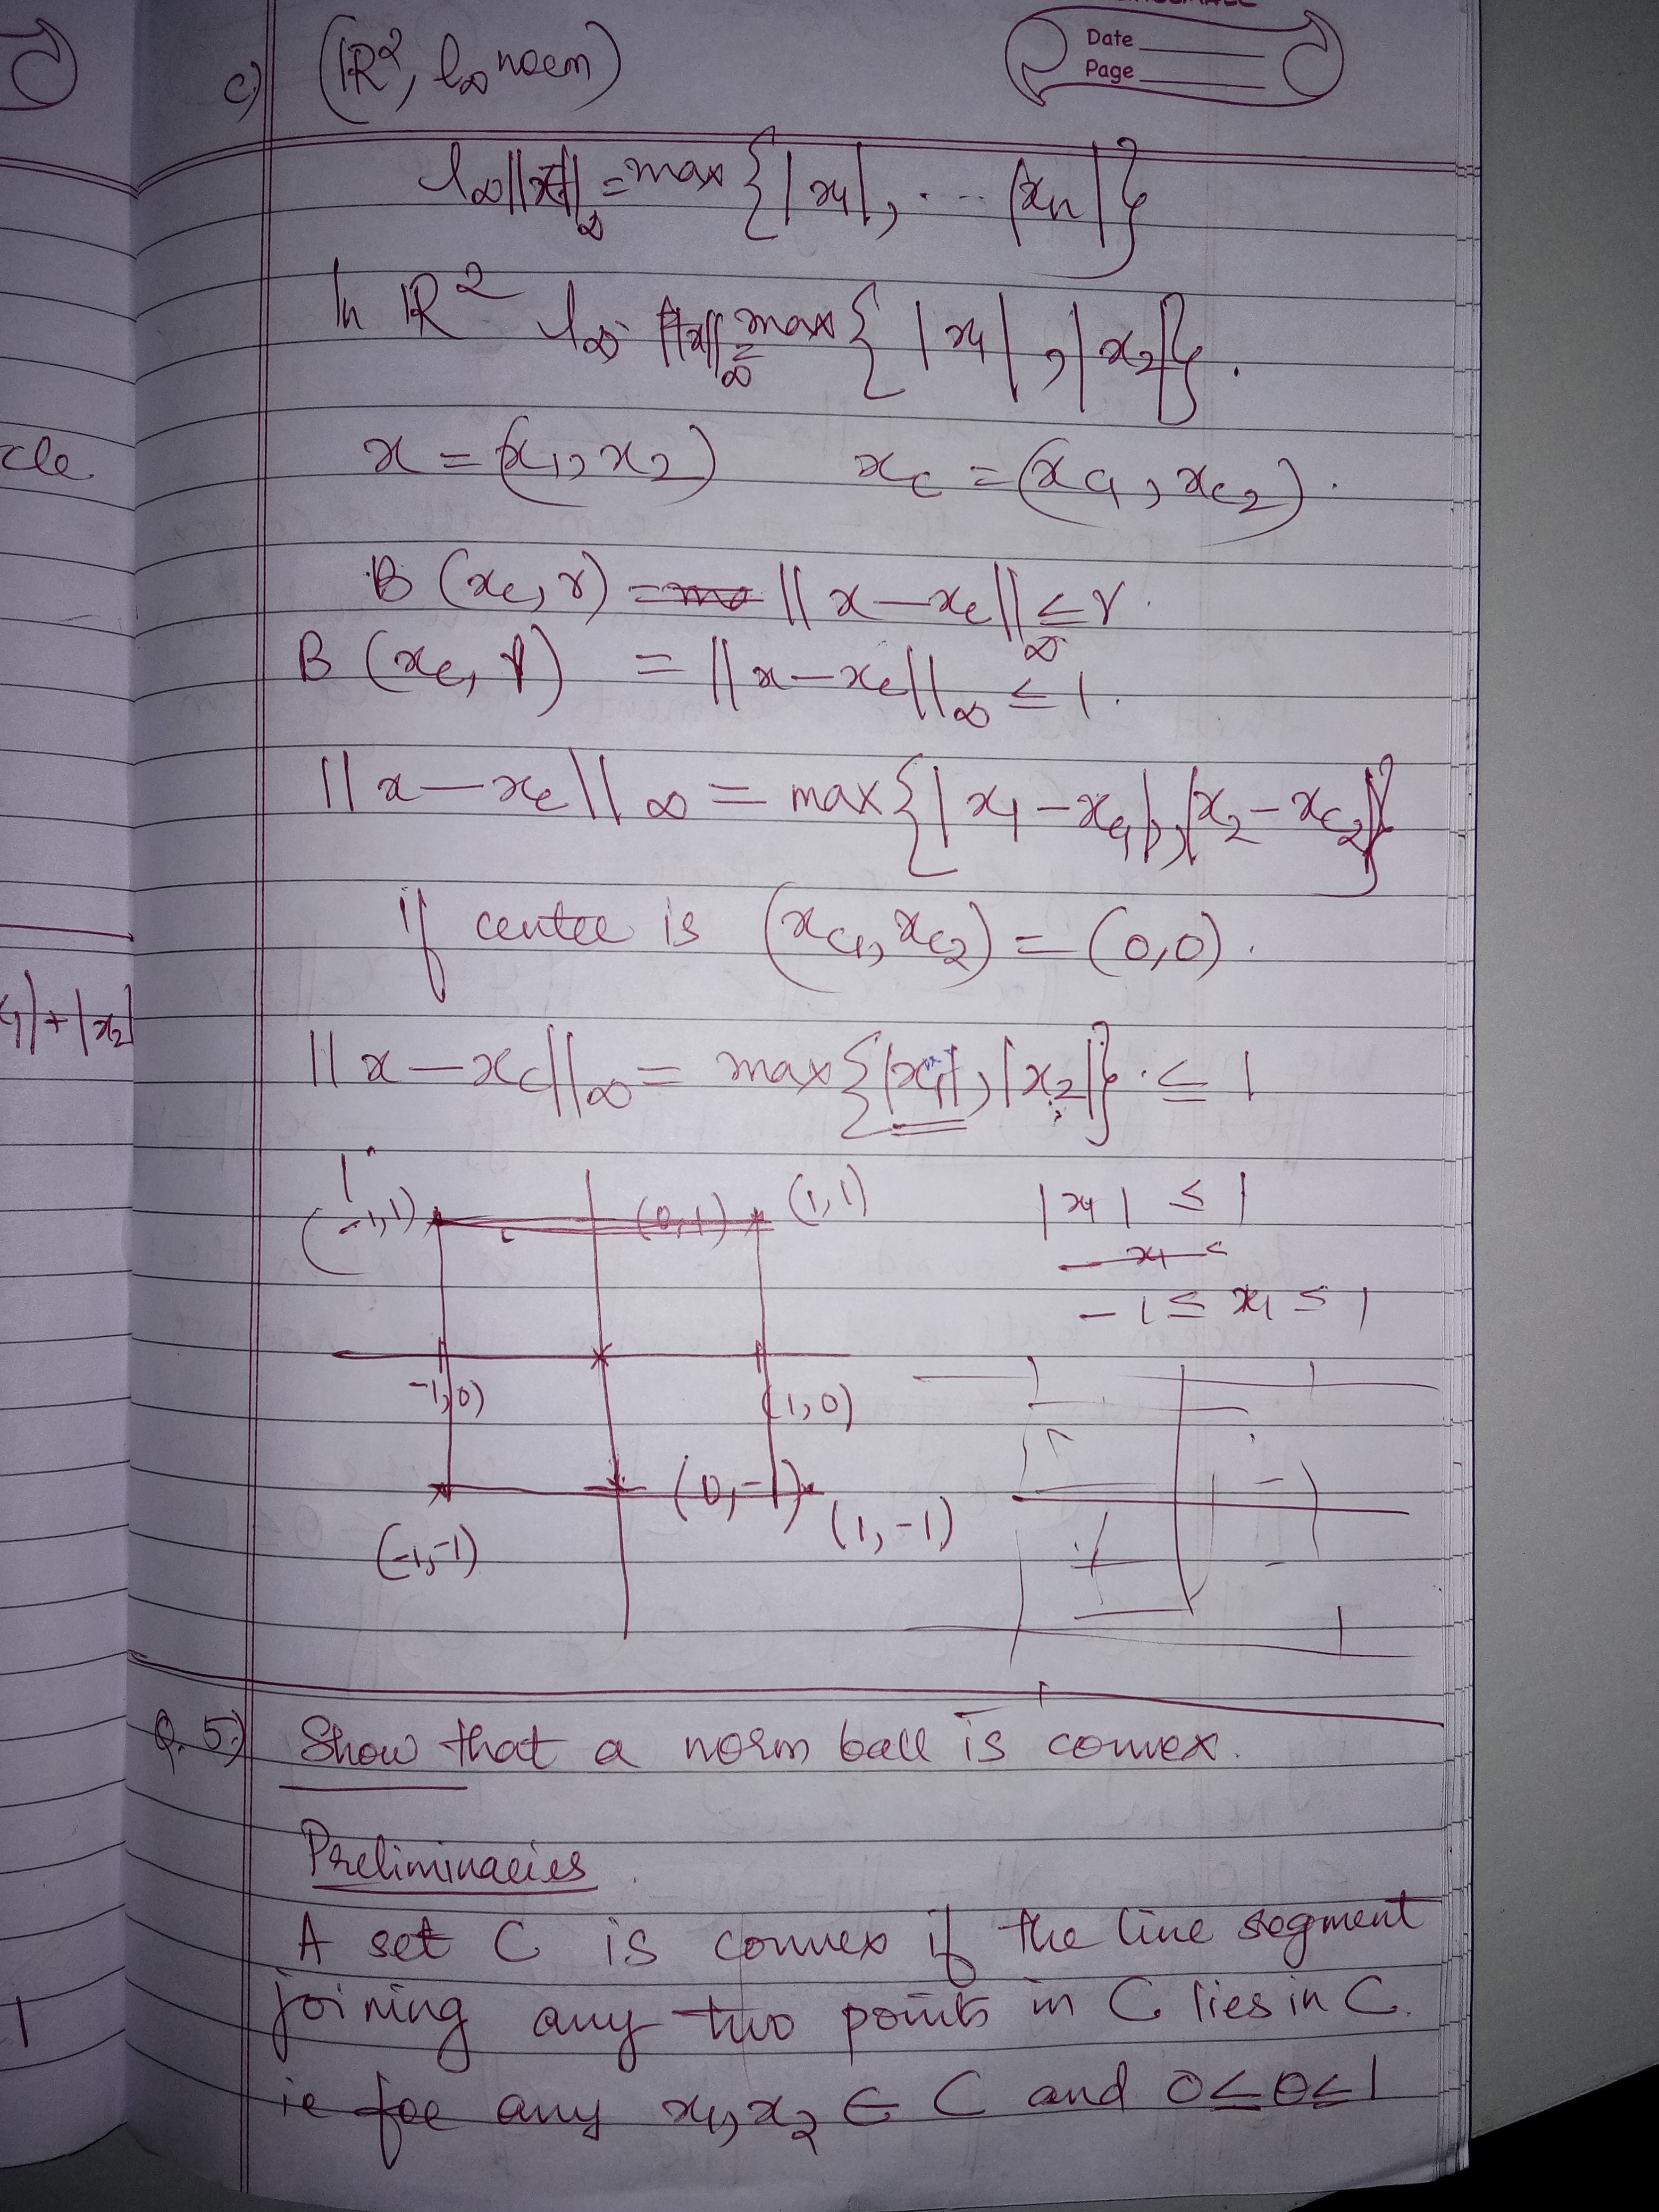 Date
Page
c) (ℝ², l∞ norm)
l∞ ||x||∞ = max {|x1|, .... |xn|}
In ℝ² l∞ ||x||∞ = max {|x1|, |x2|}.
cle
x = (x1, x2) xc = (xc1, xc2).
B (xc, r) = ||x - xc||∞ ≤ r.
B (xc, r) = ||x - xc||∞ ≤ 1.
||x - xc||∞ = max {|x1 - xc1|, |x2 - xc2|}
if center is (xc1, xc2) = (0,0).
1| + |x2|
||x - xc||∞ = max {|x1|, |x2|} ≤ 1
(-1,1) (0,1) (1,1) |x1| ≤ 1
-1 ≤ x1 ≤ 1
-1,0) (1,0)
(0,-1)
(-1,-1) (1,-1)
Q.5) Show that a norm ball is convex.
Preliminaries
A set C is convex if the line segment
joining any two points in C lies in C.
1
ie for any x1, x2 ∈ C and 0 ≤ θ ≤ 1